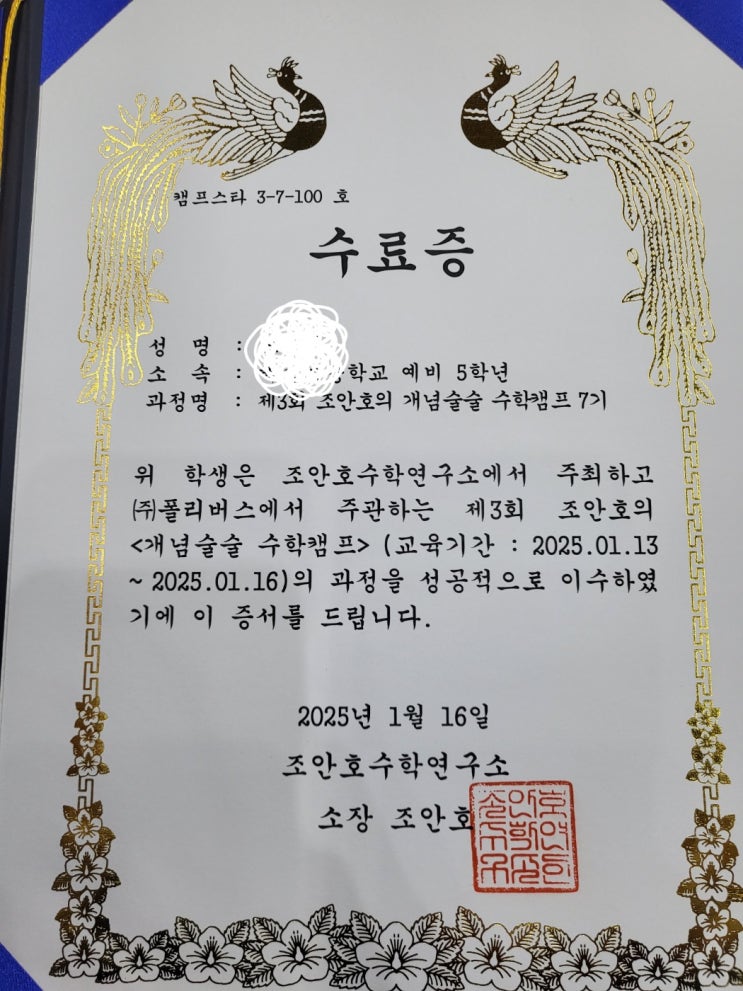 캠프스타 3-7-100 호
수료증
성 명 :
소 속 : 학교 예비 5학년
과정명 : 제3회 조안호의 개념술술 수학캠프 7기
위 학생은 조안호수학연구소에서 주최하고
㈜폴리버스에서 주관하는 제3회 조안호의
<개념술술 수학캠프> (교육기간 : 2025.01.13
~ 2025.01.16)의 과정을 성공적으로 이수하였
기에 이 증서를 드립니다.
2025년 1월 16일
조안호수학연구소
소장 조안호